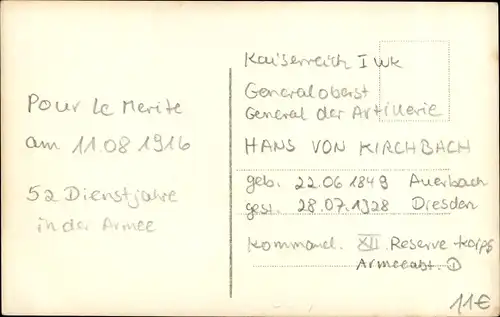 Pour le Merite
am 11.08 1916
52 Dienstjahre
in der Armee
Kaiserreich I Wk
Generaloberst
General der Artillerie
HANS VON KIRCHBACH
geb. 22.06 1849 Auerbach
gest. 28.07.1928 Dresden
Kommand. XII Reserve Korps
Armeeabt. D
11€